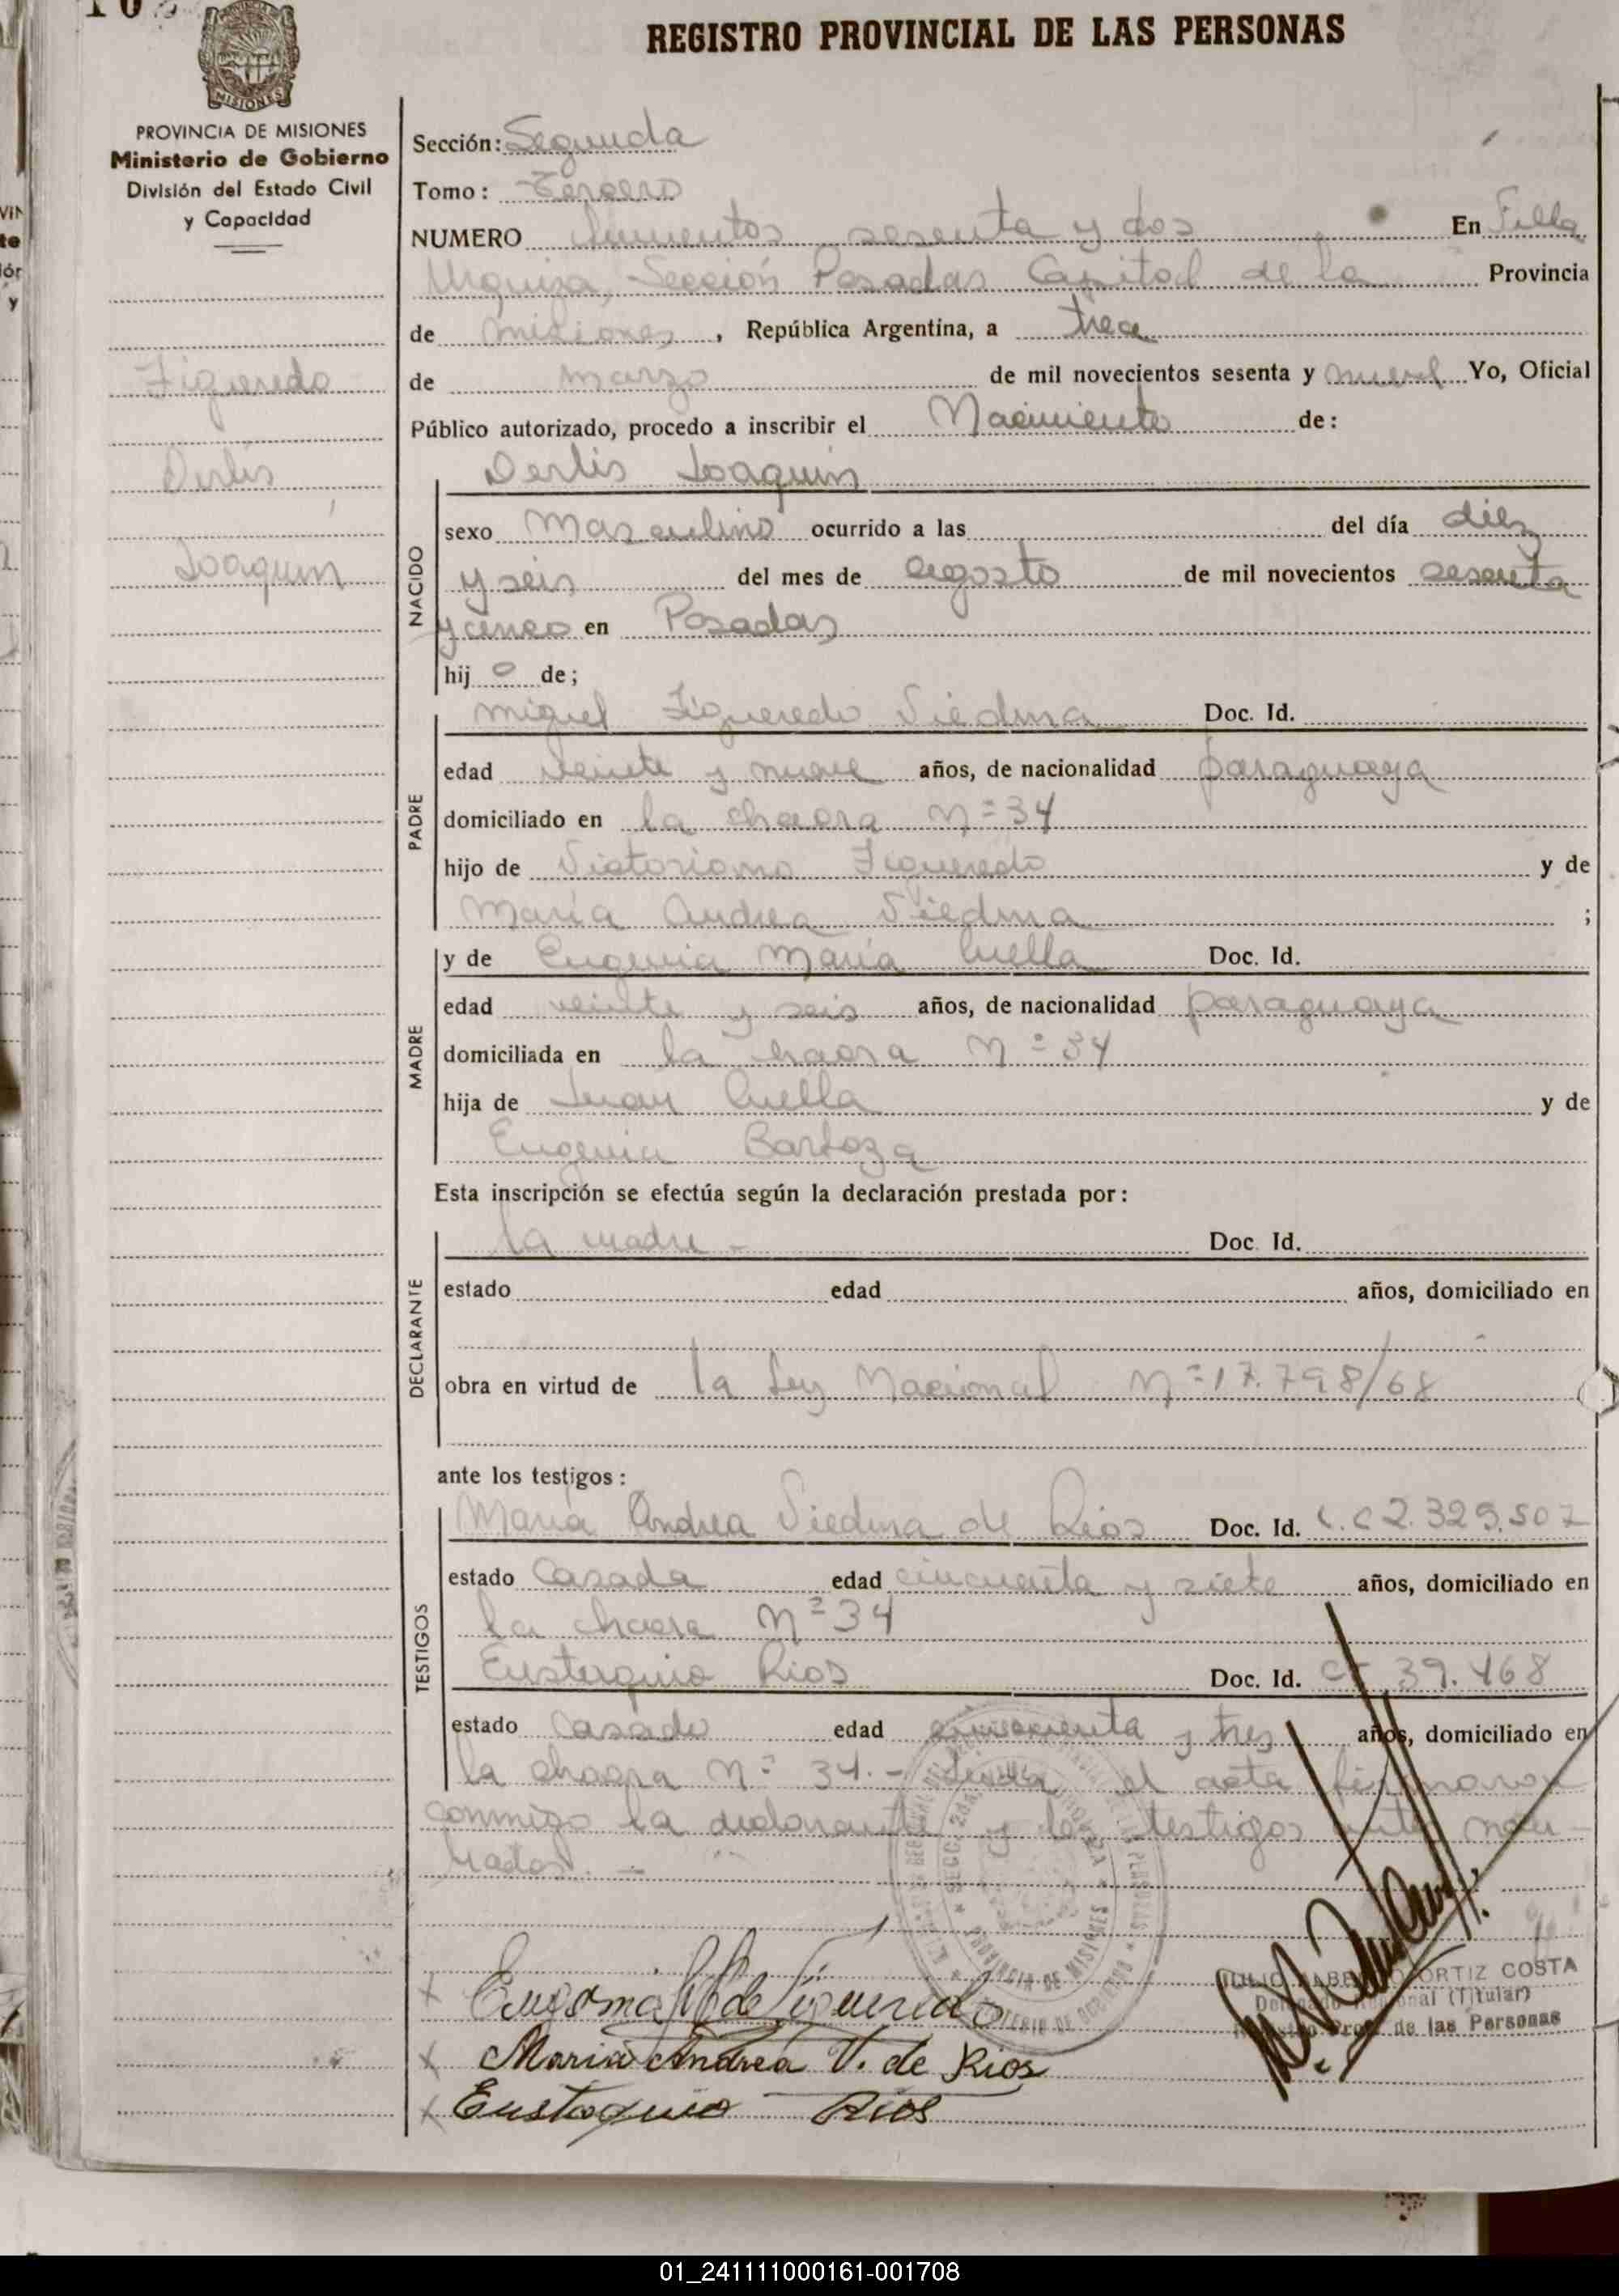 REGISTRO PROVINCIAL DE LAS PERSONAS
MISIONES
PROVINCIA DE MISIONES
Ministerio de Gobierno
División del Estado Civil
y Capacidad
Figueredo
Derlis
Joaquin
Sección: Segunda
Tomo: Tercero
NUMERO sesenta y dos En Villa
Urquiza, Sección Posadas Capital de la Provincia
de Misiones, República Argentina, a trece
de marzo de mil novecientos sesenta y nueve Yo, Oficial
Público autorizado, procedo a inscribir el Nacimiento de:
Derlis Joaquin
NACIDO
sexo Masculino ocurrido a las del día diez
y seis del mes de agosto de mil novecientos sesenta
y cinco en Posadas
hij o de;
PADRE
Miguel Figueredo Viedma Doc. Id.
edad veinte y nueve años, de nacionalidad paraguaya
domiciliado en la chacra Nº 34
hijo de Victoriano Figueredo y de
María Andrea Viedma ;
MADRE
y de Eugenia María Cuella Doc. Id.
edad veinte y seis años, de nacionalidad paraguaya
domiciliada en la chacra Nº 34
hija de Juan Cuella y de
Eugenia Bartoza
Esta inscripción se efectúa según la declaración prestada por:
DECLARANTE
la madre - Doc. Id.
estado edad años, domiciliado en
obra en virtud de la Ley Nacional Nº 17.798/68
ante los testigos:
TESTIGOS
María Andrea Viedma de Rios Doc. Id. C.C 2.329.507
estado Casada edad cincuenta y siete años, domiciliado en
la chacra Nº 34
Eustaquio Rios Doc. Id. 39.468
estado Casado edad cincuenta y tres años, domiciliado en
la chacra Nº 34. - el acta firmaron
conmigo la declarante y los testigos antes nom-
brados. -
PROVINCIA DE MISIONES
Eugenia de Figueredo
Maria Andrea V. de Rios
Eustaquio Rios
ORTIZ COSTA
(Titular)
de las Personas
01_241111000161-001708